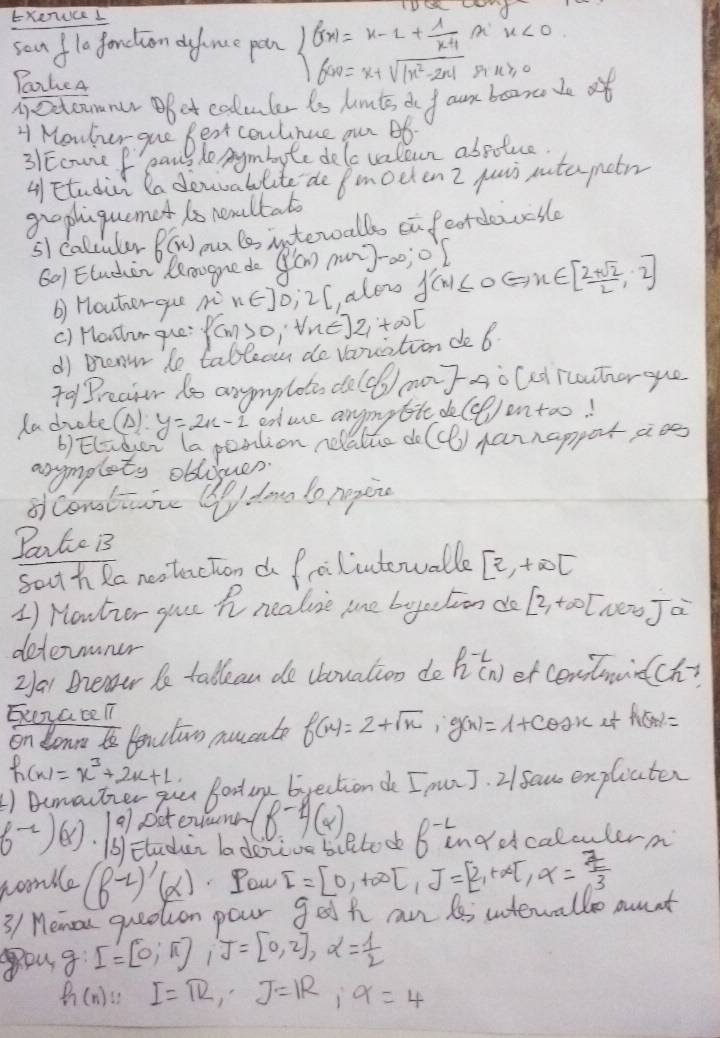 Exercice 1
Soit f la fonction définie par { f(x) = x - 1 + 1/(x+1) si x < 0.
f(x) = x + √|x²-2x| si x ≥ 0
Partie A
1) Déterminer Df et calculer les limites de f aux bornes de Df
2) Montrer que f est continue sur Df.
3) Ecrire f sans le symbole de la valeur absolue.
4) Etudier la dérivabilité de f en 0 et en 2 puis interpreter
graphiquement les resultats
5) Calculer f'(x) sur les intervalles où f est dérivable
6a) Etudier le signe de f'(x) sur ]-∞; 0[
b) Montrer que si x ∈ ]0; 2[, alors f'(x) ≤ 0 ⟺ x ∈ [(2+√2)/2; 2]
c) Montrer que: f'(x) > 0, ∀x ∈ ]2, +∞[
d) Dresser le tableau de variation de f.
7a) Préciser les asymptotes de (Cf) sur ]-∞ 0[ et montrer que
la droite (Δ): y = 2x - 1 est une asymptote de (Cf) en +∞ !
b) Etudier la position relative de (Cf) par rapport à ces
asymptotes obliques.
8) Construire (Cf) dans le repère
Partie B
Soit h la restriction de f à l'intervalle [2, +∞[
1) Montrer que h realise une bijection de [2, +∞[ vers J à
determiner
2)a) Dresser le tableau de variation de h⁻¹(x) et construire (Ch⁻¹
Exercice II
On donne les fonctions suivante f(x) = 2 + √x ; g(x) = 1 + cos x et h(x) =
h(x) = x³ + 2x + 1.
1) Demontrer que f est une bijection de I sur J. 2) Sans expliciter
f⁻¹)(x). a) Determiner (f⁻¹)(α)
b) Etudier la dérivabilité de f⁻¹ en α et calculer si
possible (f⁻¹)'(α). Pour I = [0, +∞[, J = [2, +∞[, α =
3) Même question pour g et h sur les intervalles suivant
Pour g: I = [0; π] ; J = [0, 2], α = 1/2
h(x): I = ℝ, J = ℝ ; α = 4